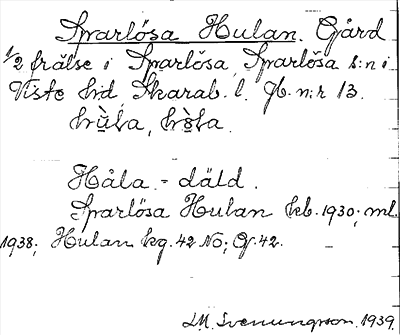 Sparlösa Hulan. Gård
1/2 frälse i Sparlösa, Sparlösa s:n i
Viste hd, Skarab. l. Jb. n:r 13.
hù̀la, hò̀la.
Håla. - däld.
Sparlösa Hulan kb. 1930; ml.
1938; Hulan kg. 42 NO; G. 42.
LM. Svenungsson. 1939